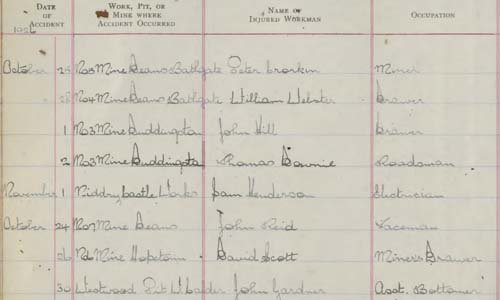 DATE OF ACCIDENT
WORK, PIT, OR MINE WHERE ACCIDENT OCCURRED
NAME OF INJURED WORKMAN
OCCUPATION
October No3 Mine Deans Bathgate Peter Miner
28 No4 Mine Deans Bathgate William Webster Drawer
1 No3 Mine Duddingston John Hill Drawer
2 No3 Mine Duddingston Thomas Downie Roadsman
November 1 Niddry Castle Works Sam Henderson Electrician
October 24 No7 Mine Deans John Reid Faceman
26 No6 Mine Hopetoun David Scott Miners Drawer
30 Westwood Pit W Calder John Gardner Asst. Bottomer